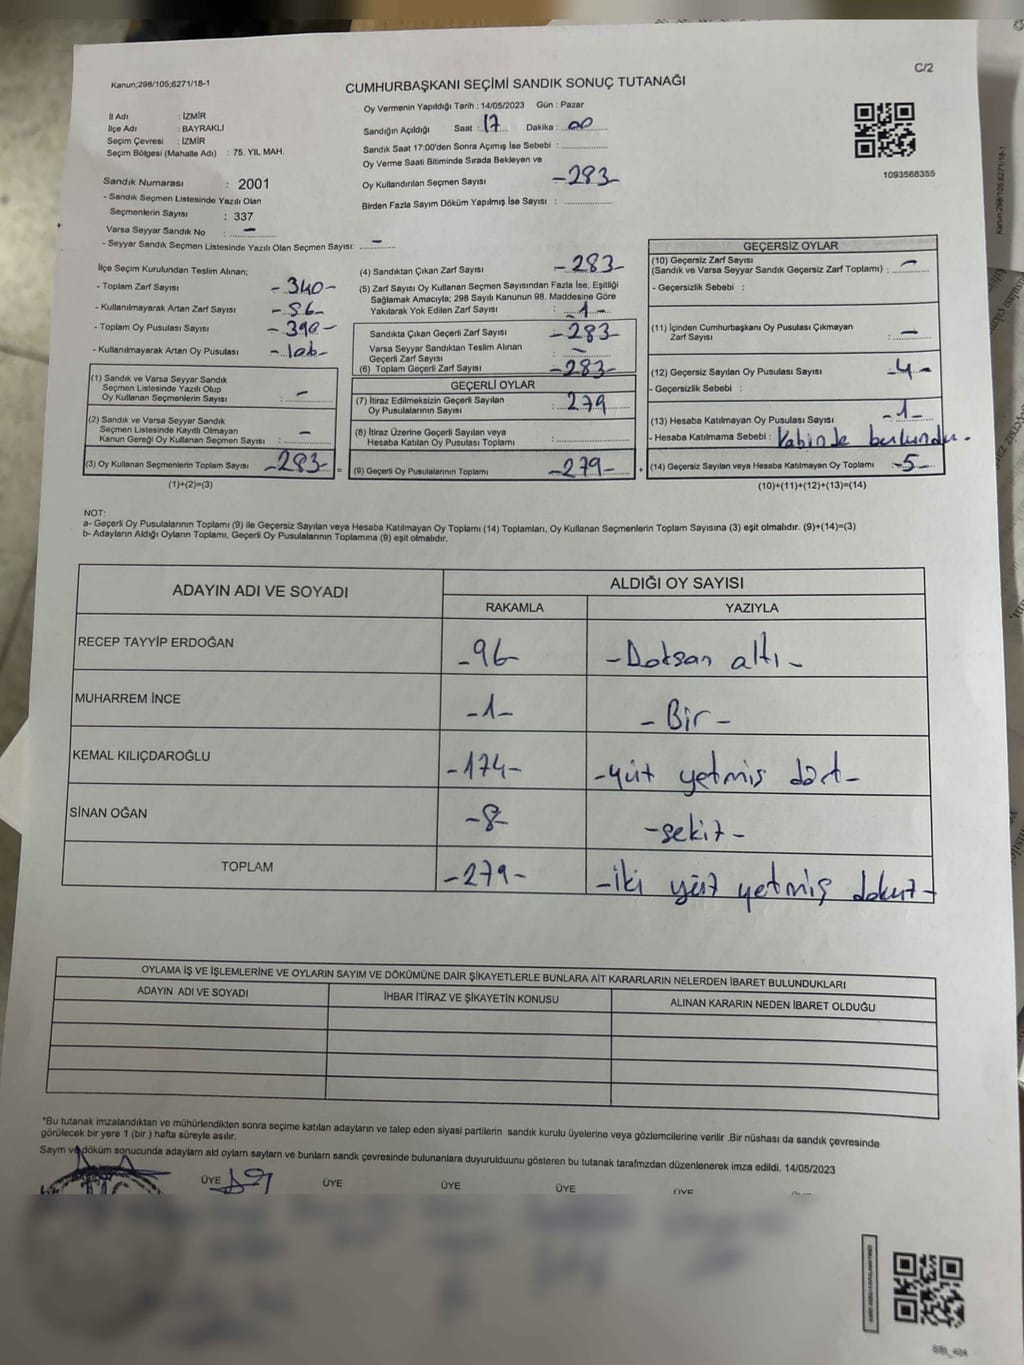 C/2
Kanun:298/105;6271/18-1
CUMHURBAŞKANI SEÇİMİ SANDIK SONUÇ TUTANAĞI
İl Adı : İZMİR
İlçe Adı : BAYRAKLI
Seçim Çevresi : İZMİR
Seçim Bölgesi (Mahalle Adı) : 75. YIL MAH.
Sandık Numarası : 2001
- Sandık Seçmen Listesinde Yazılı Olan
Seçmenlerin Sayısı : 337
Varsa Seyyar Sandık No : -
- Seyyar Sandık Seçmen Listesinde Yazılı Olan Seçmen Sayısı: -
Oy Vermenin Yapıldığı Tarih : 14/05/2023 Gün : Pazar
Sandığın Açıldığı Saat : 17 Dakika : 00
Sandık Saat 17:00'den Sonra Açımış İse Sebebi :
Oy Verme Saati Bitiminde Sırada Bekleyen ve
Oy Kullandırılan Seçmen Sayısı -283-
Birden Fazla Sayım Döküm Yapılmış İse Sayısı :
1093568355
İlçe Seçim Kurulundan Teslim Alınan;
- Toplam Zarf Sayısı -340-
- Kullanılmayarak Artan Zarf Sayısı
- Toplam Oy Pusulası Sayısı -390-
- Kullanılmayarak Artan Oy Pusulası
(1) Sandık ve Varsa Seyyar Sandık
Seçmen Listesinde Yazılı Olup
Oy Kullanan Seçmenlerin Sayısı : -
(2) Sandık ve Varsa Seyyar Sandık
Seçmen Listesinde Kayıtlı Olmayan
Kanun Gereği Oy Kullanan Seçmen Sayısı : -
(3) Oy Kullanan Seçmenlerin Toplam Sayısı -283- =
(1)+(2)=(3)
(4) Sandıktan Çıkan Zarf Sayısı -283-
(5) Zarf Sayısı Oy Kullanan Seçmen Sayısından Fazla İse, Eşitliği
Sağlamak Amacıyla; 298 Sayılı Kanunun 98. Maddesine Göre
Yakılarak Yok Edilen Zarf Sayısı : -1-
Sandıkta Çıkan Geçerli Zarf Sayısı -283-
Varsa Seyyar Sandıktan Teslim Alınan
Geçerli Zarf Sayısı : -
(6) Toplam Geçerli Zarf Sayısı -283-
GEÇERLİ OYLAR
(7) İtiraz Edilmeksizin Geçerli Sayılan
Oy Pusulalarının Sayısı : 279
(8) İtiraz Üzerine Geçerli Sayılan veya
Hesaba Katılan Oy Pusulası Toplamı :
(9) Geçerli Oy Pusulalarının Toplamı -279- +
GEÇERSİZ OYLAR
(10) Geçersiz Zarf Sayısı
(Sandık ve Varsa Seyyar Sandık Geçersiz Zarf Toplamı) : -
- Geçersizlik Sebebi :
(11) İçinden Cumhurbaşkanı Oy Pusulası Çıkmayan
Zarf Sayısı : -
(12) Geçersiz Sayılan Oy Pusulası Sayısı -4-
- Geçersizlik Sebebi :
(13) Hesaba Katılmayan Oy Pusulası Sayısı -1-
- Hesaba Katılmama Sebebi : Kabinde bulundu.
(14) Geçersiz Sayılan veya Hesaba Katılmayan Oy Toplamı :-5-
(10)+(11)+(12)+(13)=(14)
NOT:
a- Geçerli Oy Pusulalarının Toplamı (9) ile Geçersiz Sayılan veya Hesaba Katılmayan Oy Toplamı (14) Toplamları, Oy Kullanan Seçmenlerin Toplam Sayısına (3) eşit olmalıdır. (9)+(14)=(3)
b- Adayların Aldığı Oyların Toplamı, Geçerli Oy Pusulalarının Toplamına (9) eşit olmalıdır.
ADAYIN ADI VE SOYADI ALDIĞI OY SAYISI
RAKAMLA YAZIYLA
RECEP TAYYİP ERDOĞAN -96- -Doksan altı-
MUHARREM İNCE -1- -Bir-
KEMAL KILIÇDAROĞLU -174- -yüz yetmiş dört-
SİNAN OĞAN -8- -sekiz-
TOPLAM -279- -iki yüz yetmiş dokuz-
OYLAMA İŞ VE İŞLEMLERİNE VE OYLARIN SAYIM VE DÖKÜMÜNE DAİR ŞİKAYETLERLE BUNLARA AİT KARARLARIN NELERDEN İBARET BULUNDUKLARI
ADAYIN ADI VE SOYADI İHBAR İTİRAZ VE ŞİKAYETİN KONUSU ALINAN KARARIN NEDEN İBARET OLDUĞU
"Bu tutanak imzalandıktan ve mühürlendikten sonra seçime katılan adayların ve talep eden siyasi partilerin sandık kurulu üyelerine veya gözlemcilerine verilir .Bir nüshası da sandık çevresinde
görülecek bir yere 1 (bir ) hafta süreyle asılır.
Sayım ve döküm sonucunda adaylarn ald oylarn saylarn ve bunlarn sandk çevresinde bulunanlara duyurulduunu gösteren bu tutanak tarafmzdan düzenlenerek imza edildi. 14/05/2023
ÜYE ÜYE ÜYE ÜYE ÜYE